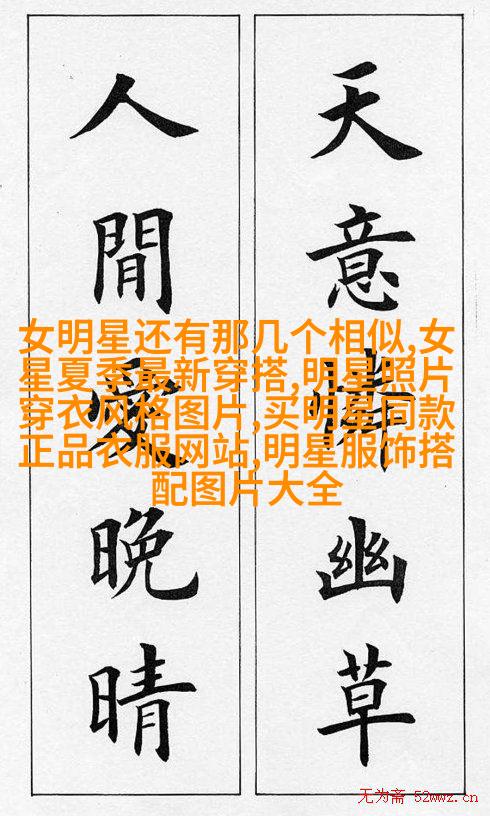 天意憐幽草
人間愛晚晴
女明星还有那几个相似,女
星夏季最新穿搭,明星照片
穿衣风格图片,买明星同款
正品衣服网站,明星服饰搭
配图片大全
无为斋 52wwz.cn